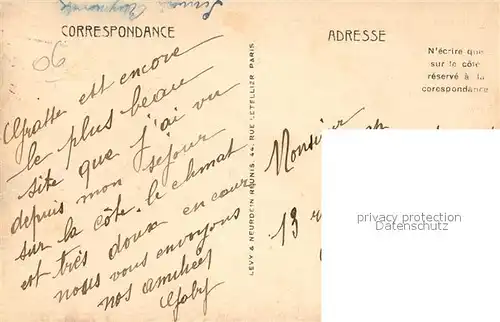 CORRESPONDANCE
ADRESSE
N'écrire que
sur le côté
réservé à la
corespondance
06
Grasse est encore
le plus beau
site que j'ai vu
depuis mon sejour
sur la côte. le climat
est très doux encore
nous vous envoyons
nos amitiées
Goby
LÉVY & NEURDEIN RÉUNIS, 44, RUE LETELLIER, PARIS
Monsieur
13
privacy protection
Datenschutz